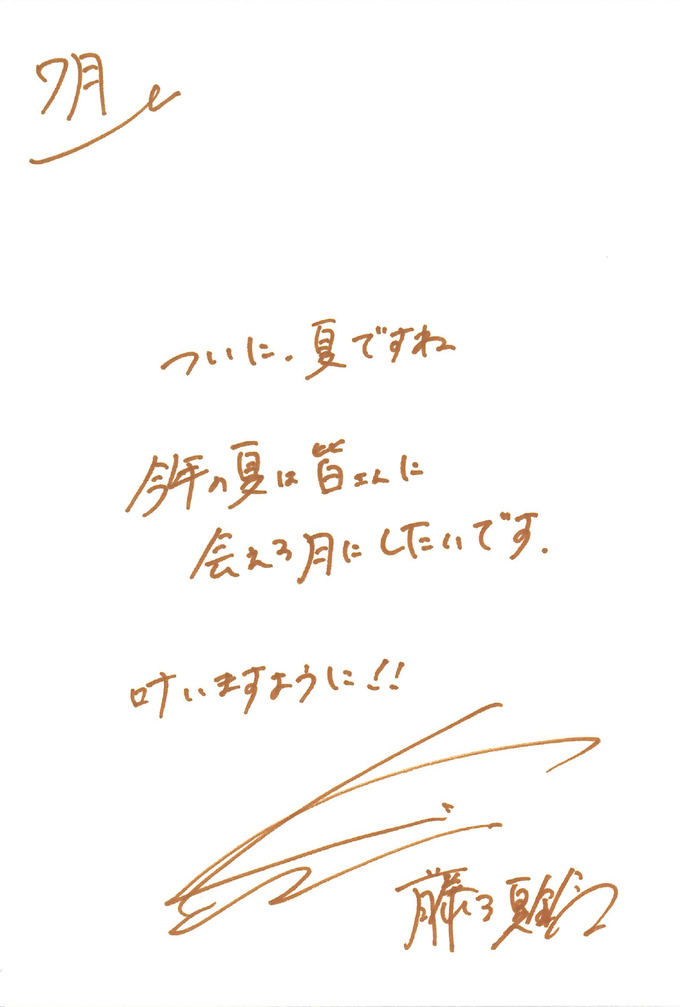 7月
ついに、夏ですね
今年の夏は皆さんに
会える月にしたいです.
叶いますように!!